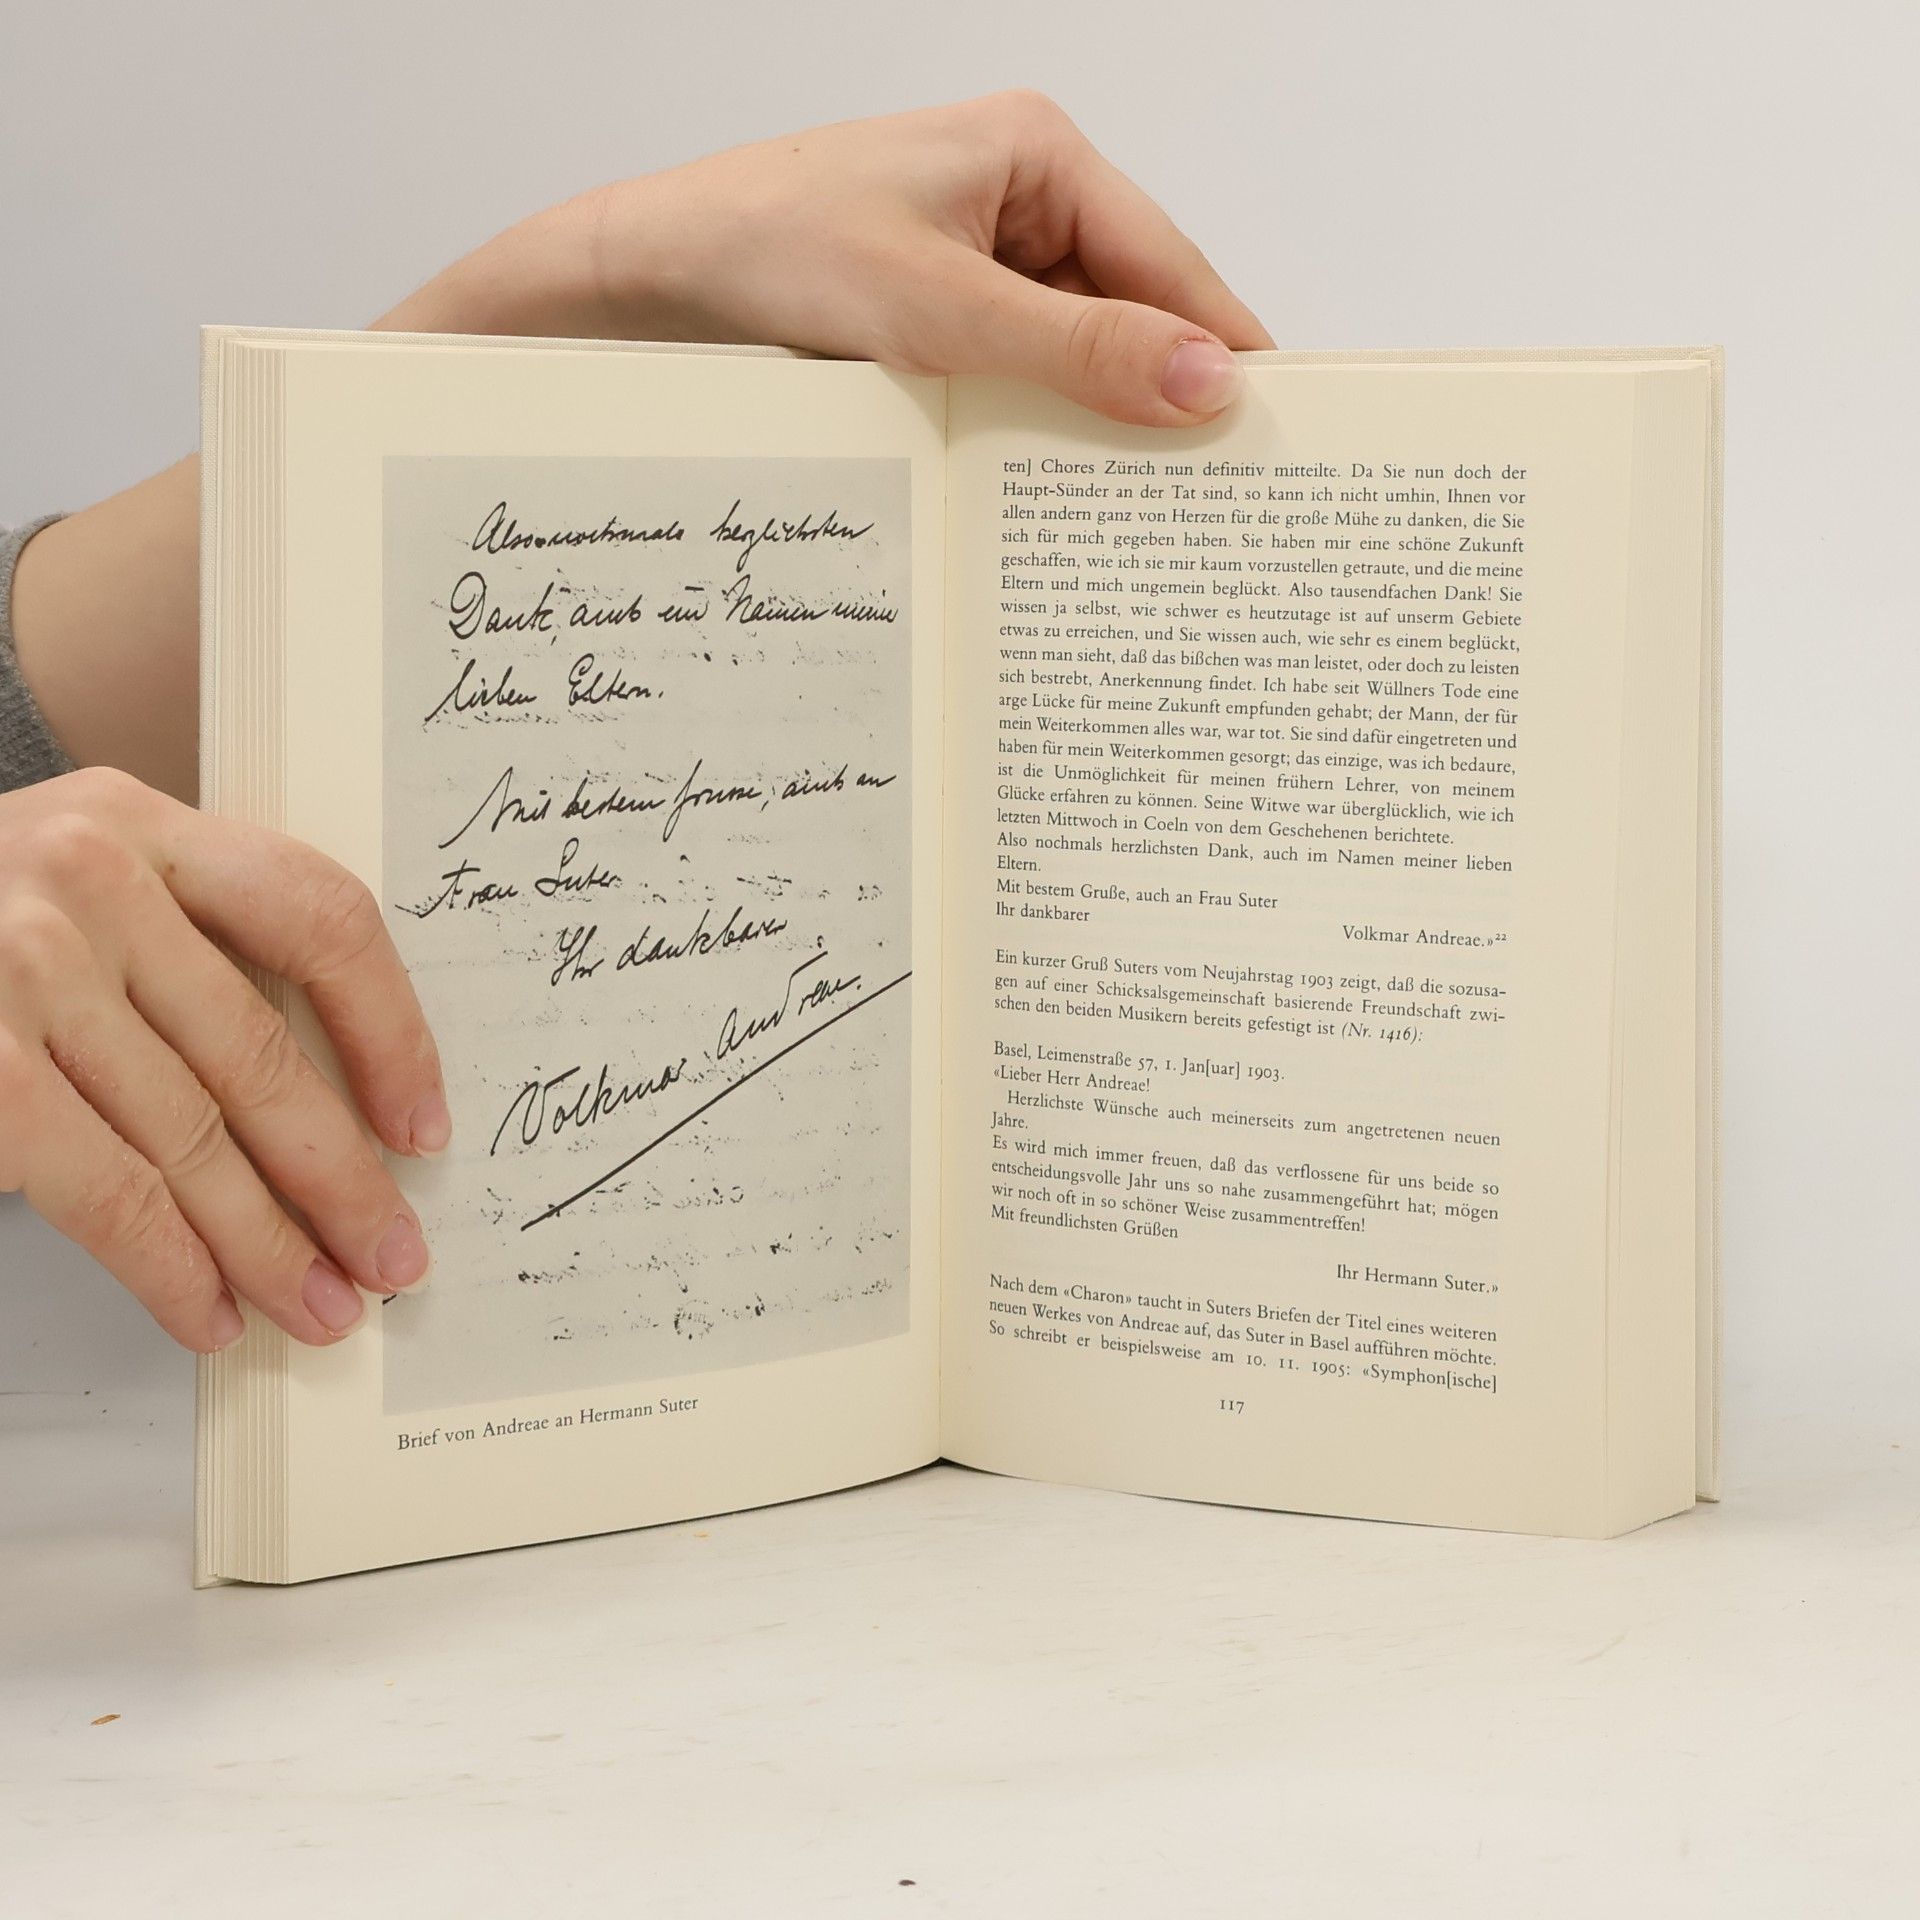 Also nochmals herzlichsten
Dank, auch im Namen meiner
lieben Eltern.
Mit bestem Grusse, auch an
Frau Suter
Ihr dankbarer
Volkmar Andreae.
Brief von Andreae an Hermann Suter
ten] Chores Zürich nun definitiv mitteilte. Da Sie nun doch der
Haupt-Sünder an der Tat sind, so kann ich nicht umhin, Ihnen vor
allen andern ganz von Herzen für die große Mühe zu danken, die Sie
sich für mich gegeben haben. Sie haben mir eine schöne Zukunft
geschaffen, wie ich sie mir kaum vorzustellen getraute, und die meine
Eltern und mich ungemein beglückt. Also tausendfachen Dank! Sie
wissen ja selbst, wie schwer es heutzutage ist auf unserm Gebiete
etwas zu erreichen, und Sie wissen auch, wie sehr es einem beglückt,
wenn man sieht, daß das bißchen was man leistet, oder doch zu leisten
sich bestrebt, Anerkennung findet. Ich habe seit Wüllners Tode eine
arge Lücke für meine Zukunft empfunden gehabt; der Mann, der für
mein Weiterkommen alles war, war tot. Sie sind dafür eingetreten und
haben für mein Weiterkommen gesorgt; das einzige, was ich bedaure,
ist die Unmöglichkeit für meinen frühern Lehrer, von meinem
Glücke erfahren zu können. Seine Witwe war überglücklich, wie ich
letzten Mittwoch in Coeln von dem Geschehenen berichtete.
Also nochmals herzlichsten Dank, auch im Namen meiner lieben
Eltern.
Mit bestem Gruße, auch an Frau Suter
Ihr dankbarer
Volkmar Andreae.»²²
Ein kurzer Gruß Suters vom Neujahrstag 1903 zeigt, daß die sozusa-
gen auf einer Schicksalsgemeinschaft basierende Freundschaft zwi-
schen den beiden Musikern bereits gefestigt ist (Nr. 1416):
Basel, Leimenstraße 57, 1. Jan[uar] 1903.
«Lieber Herr Andreae!
Herzlichste Wünsche auch meinerseits zum angetretenen neuen
Jahre.
Es wird mich immer freuen, daß das verflossene für uns beide so
entscheidungsvolle Jahr uns so nahe zusammengeführt hat; mögen
wir noch oft in so schöner Weise zusammentreffen!
Mit freundlichsten Grüßen
Ihr Hermann Suter.»
Nach dem «Charon» taucht in Suters Briefen der Titel eines weiteren
neuen Werkes von Andreae auf, das Suter in Basel aufführen möchte.
So schreibt er beispielsweise am 10. 11. 1905: «Symphon[ische]
117